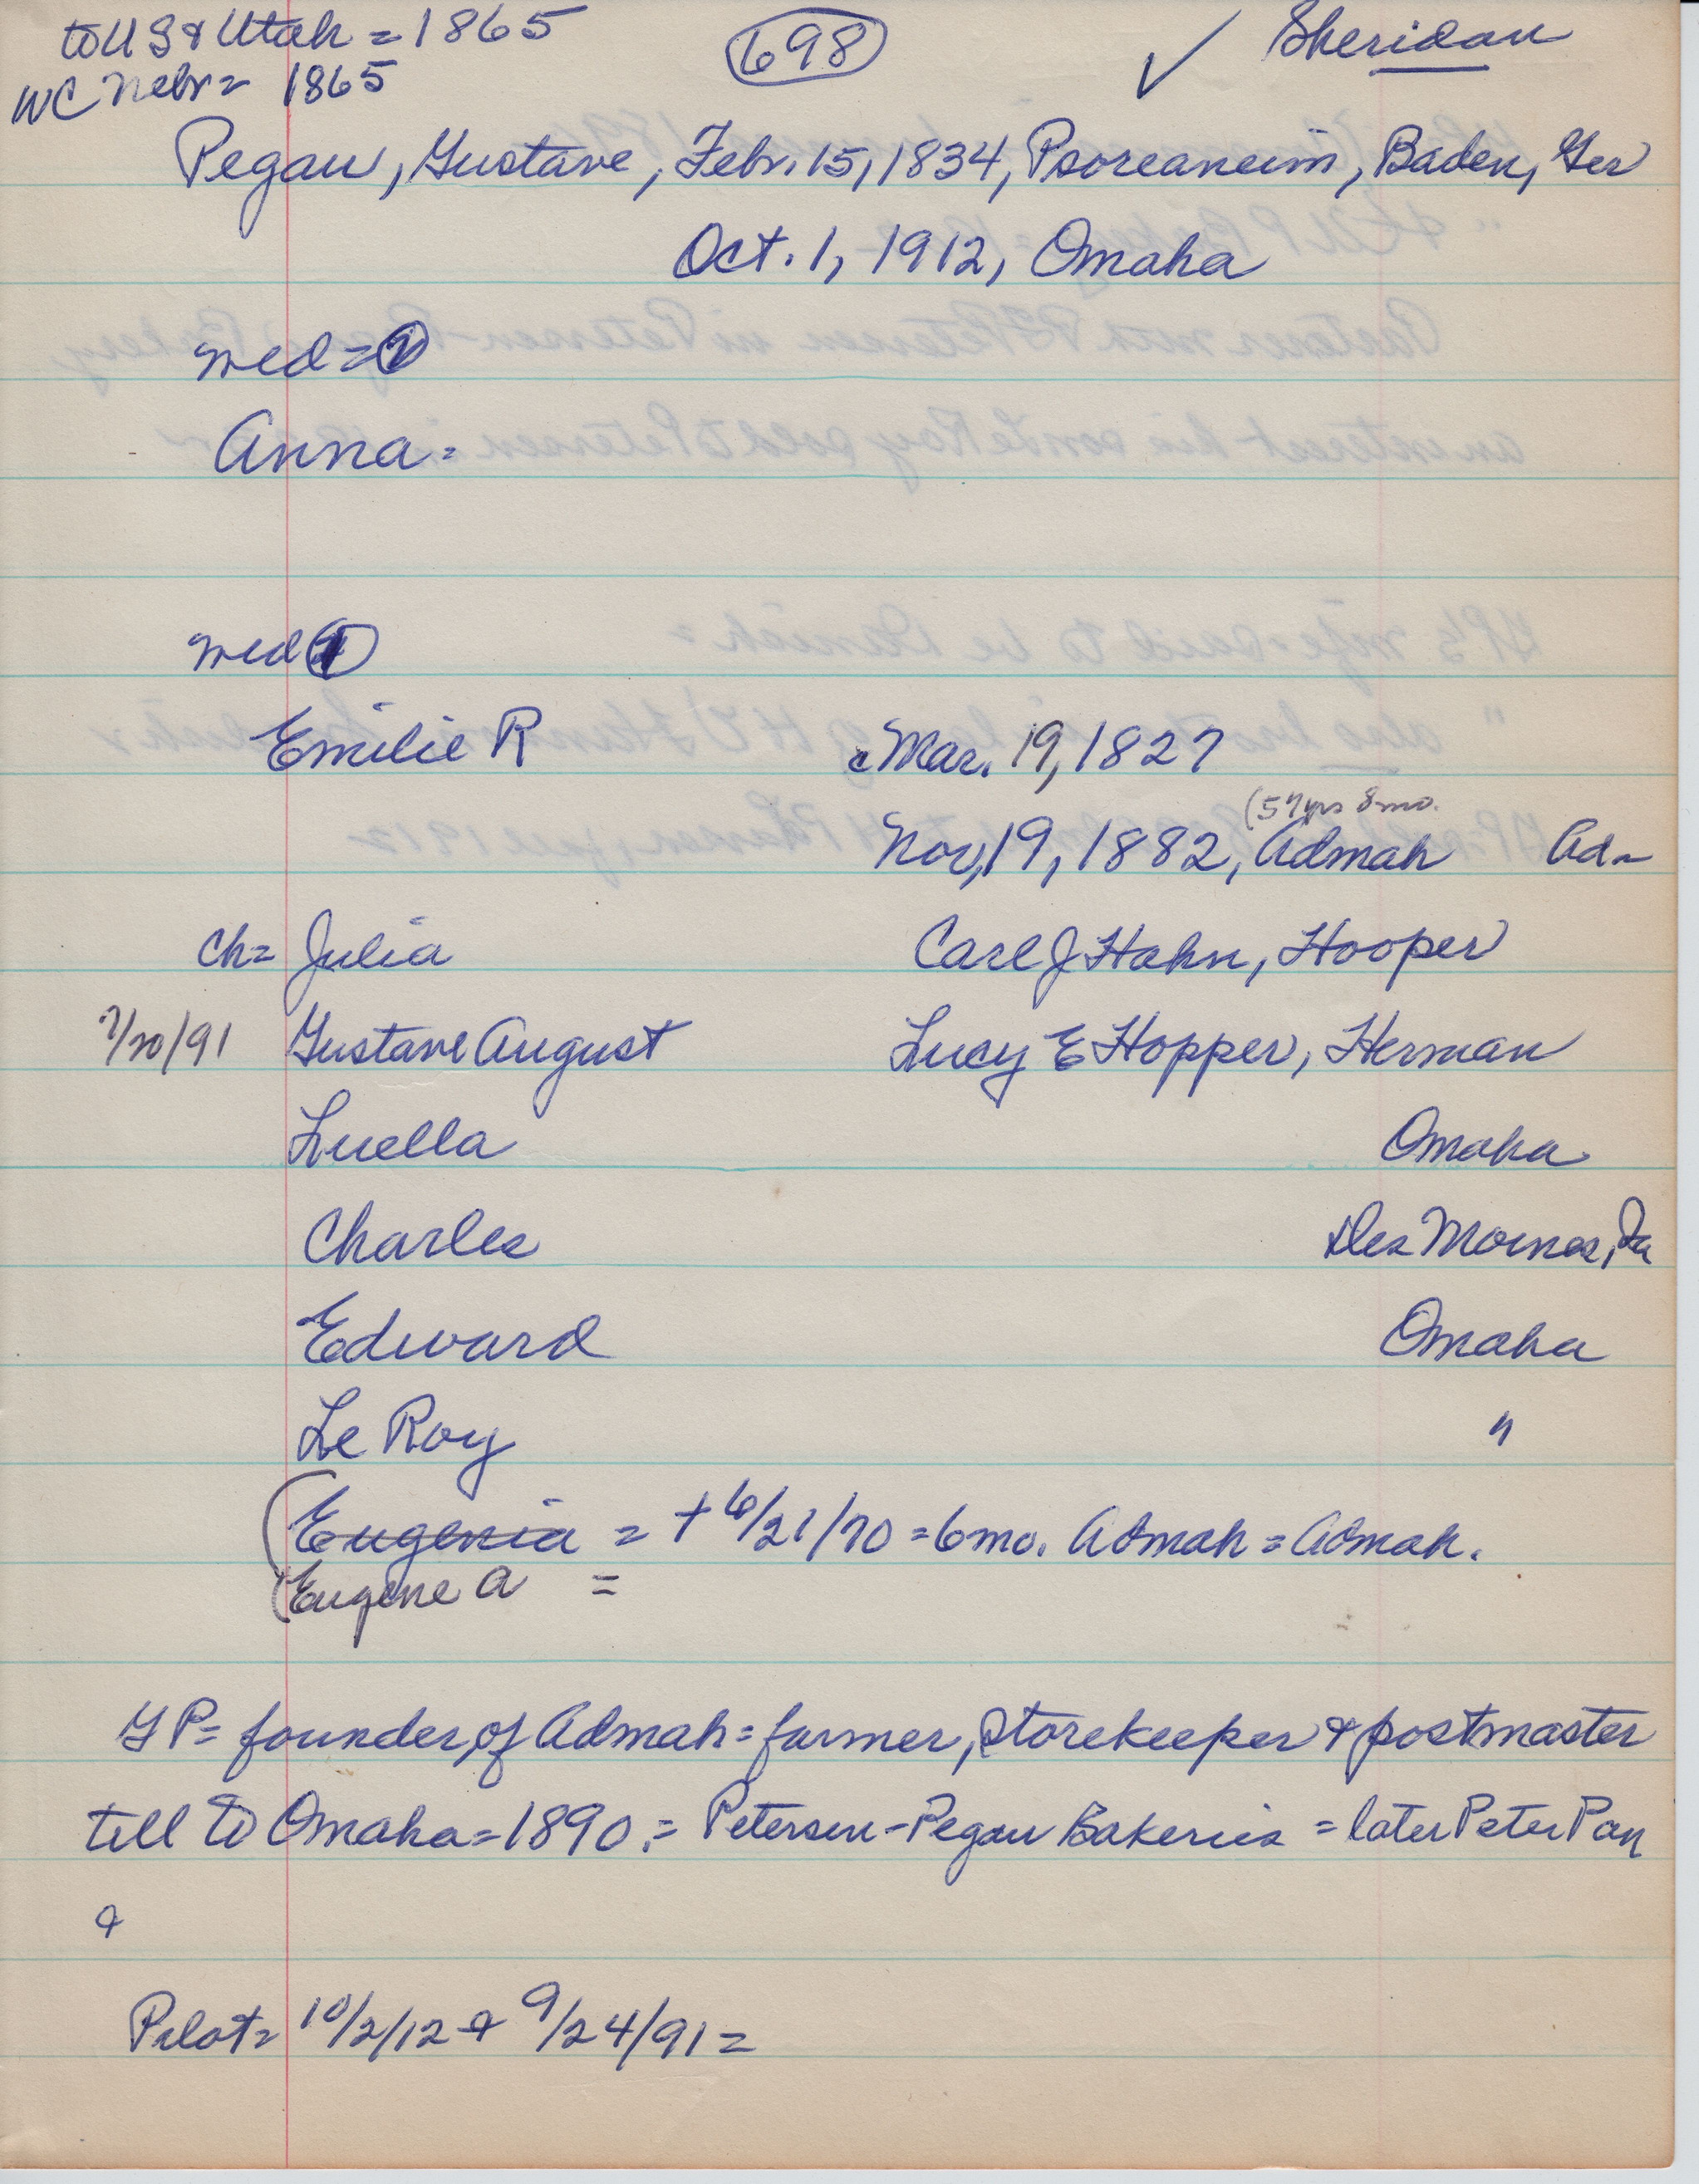 to U S & Utah = 1865
WC Nebr = 1865
698
✓ Sheridan
Pegau, Gustave, Febr. 15, 1834, Psoreaneim, Baden, Ger
Oct. 1, 1912, Omaha
med = 2
Anna =
med 1
Emilie R Mar. 19, 1827
(57 yrs 8 mo.
Nov, 19, 1882, Admah Ad-
Ch = Julia Carl J Hahn, Hooper
7/20/91 Gustave August Lucy E Hopper, Herman
Luella Omaha
Charles Des Moines, Ia
Edward Omaha
Le Roy "
(Eugenia = + 6/21/70 = 6 mo. Admah = Admah.
(Eugene A =
G P = founder, of Admah = farmer, storekeeper & postmaster
till to Omaha = 1890. = Petersen-Pegau Bakeries = later Peter Pan
&
Pilot = 10/2/12 & 9/24/91 =